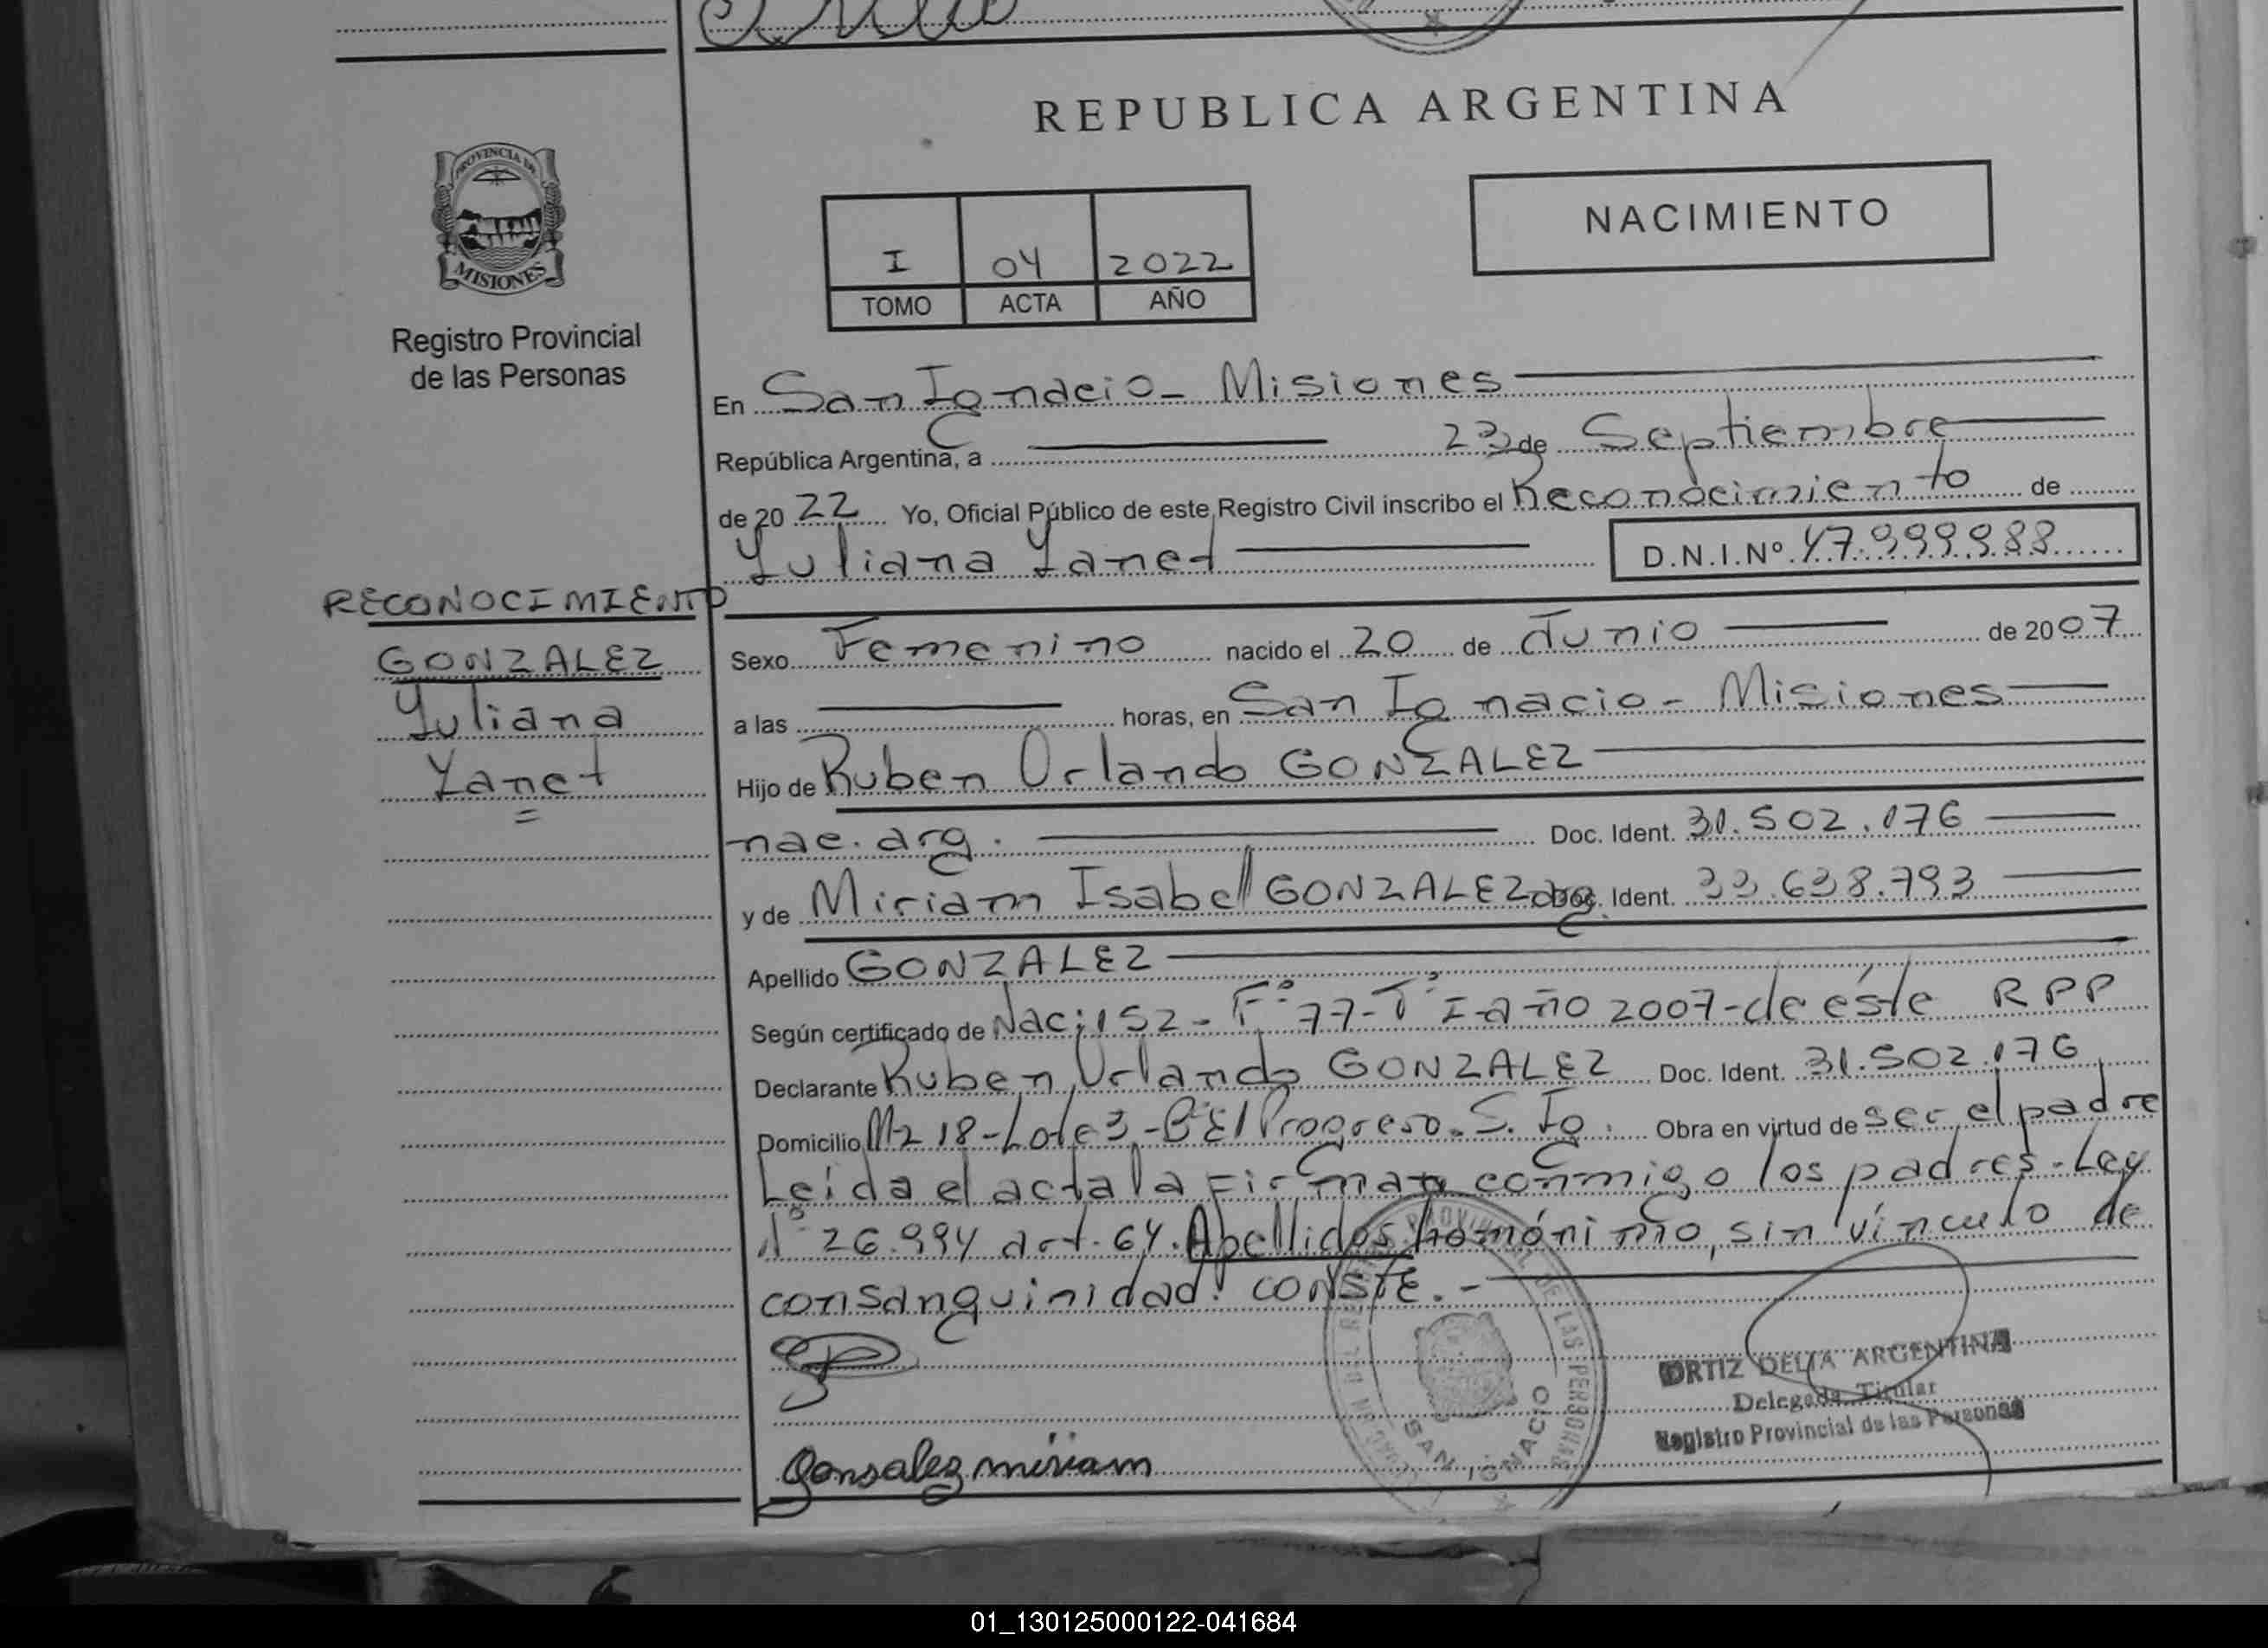 REPUBLICA ARGENTINA
PROVINCIA DE
MISIONES
Registro Provincial
de las Personas
NACIMIENTO
I 04 2022
TOMO ACTA AÑO
En San Ignacio - Misiones
República Argentina, a 23 de Septiembre
de 2022 Yo, Oficial Público de este Registro Civil inscribo el Reconocimiento de
Yuliana Yanet D.N.I.Nº 47.999.988
RECONOCIMIENTO
GONZALEZ
Yuliana
Yanet
Sexo Femenino nacido el 20 de Junio de 2007
a las horas, en San Ignacio - Misiones
Hijo de Ruben Orlando GONZALEZ
nac. arg. Doc. Ident. 31.502.176
y de Miriam Isabel GONZALEZ arg. Doc. Ident. 33.638.793
Apellido GONZALEZ
Según certificado de Nac: 152 - Fº 77 - Tº I - año 2007 - de éste RPP
Declarante Ruben Orlando GONZALEZ Doc. Ident. 31.502.176
Domicilio Mz 18 - Lote 3 - Bº El Progreso. S. Ig. Obra en virtud de ser el padre
Leída el acta la firman conmigo los padres - Ley
Nº 26.994 art. 64. Apellidos homónimo, sin vínculo de
consanguinidad. CONSTE. -
ORTIZ DELIA ARGENTINA
Delegada Titular
Registro Provincial de las Personas
SAN IGNACIO
gonsalez miriam
01_130125000122-041684